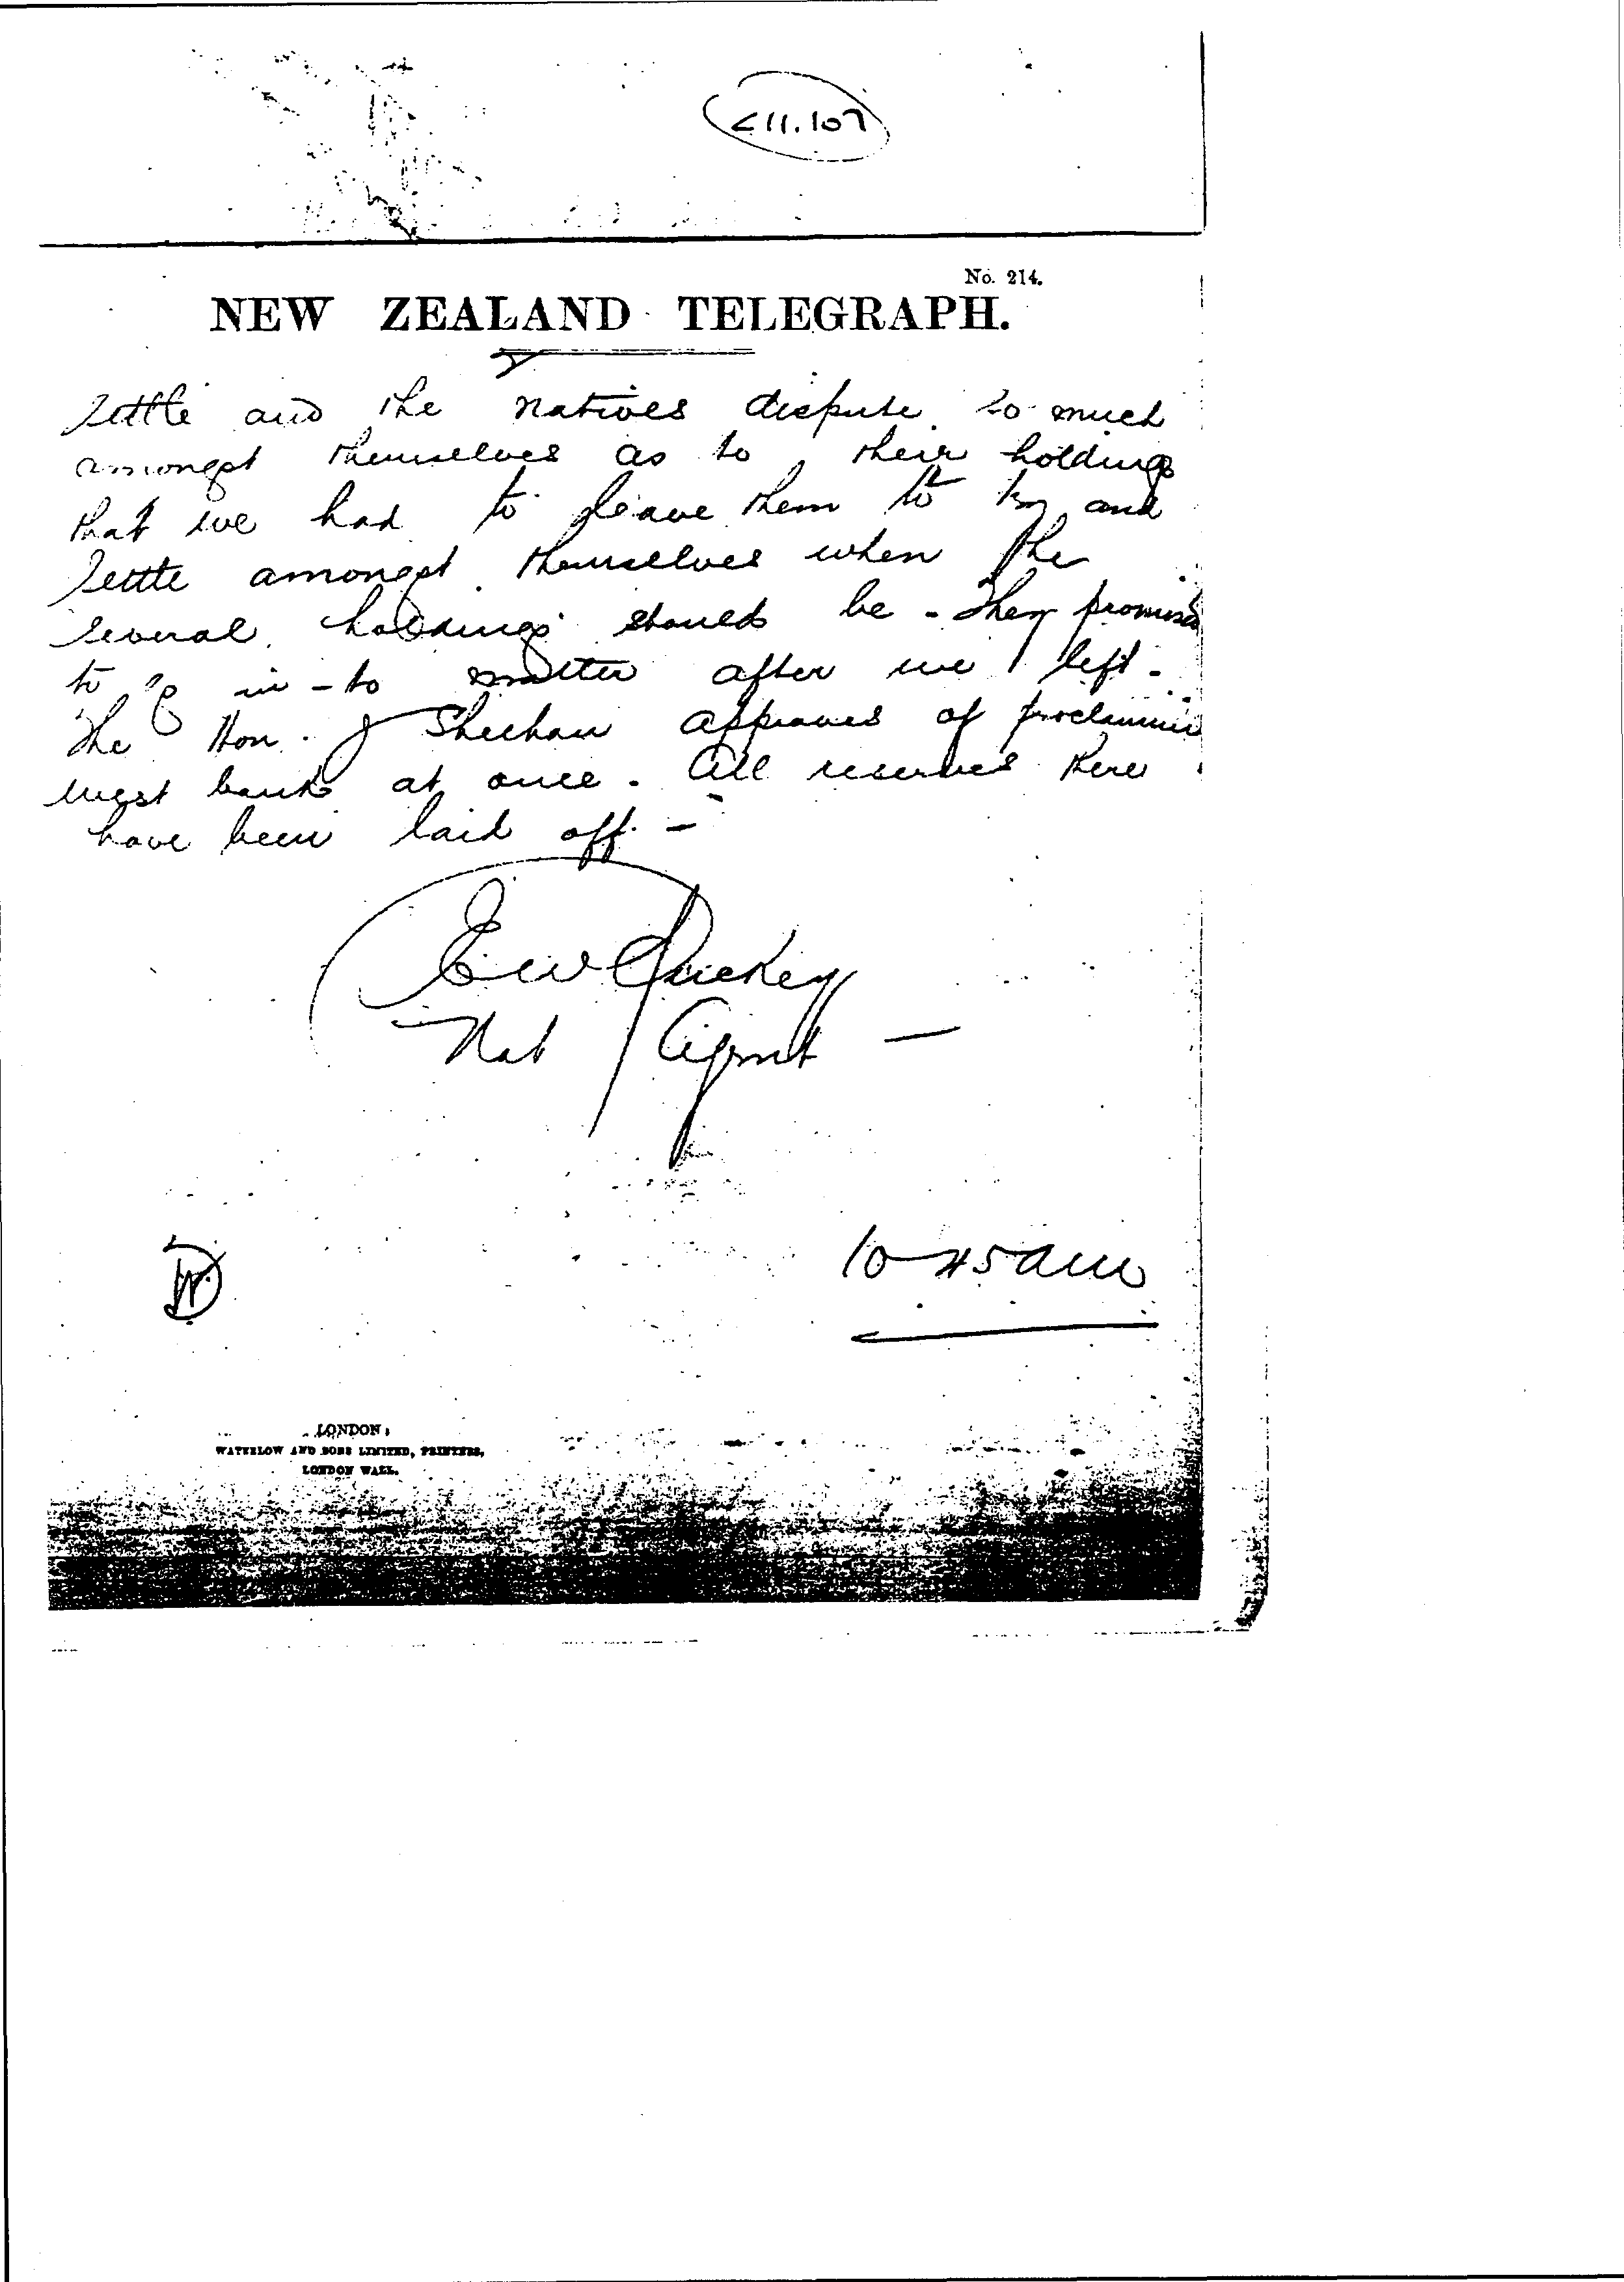 C11.107
No. 214.
NEW ZEALAND TELEGRAPH.
settle and the natives dispute so much
amongst themselves as to their holdings
that we had to leave them to try and
settle amongst themselves when the
several holdings should be - They promised
to go in-to matter after we left -
The Hon. J Sheehan approves of proclaiming
West bank at once - All reserves there
have been laid off. -
E W
Nat Agent -
10-45 am
LONDON:
WATERLOW AND SONS LIMITED, PRINTERS,
LONDON WALL.